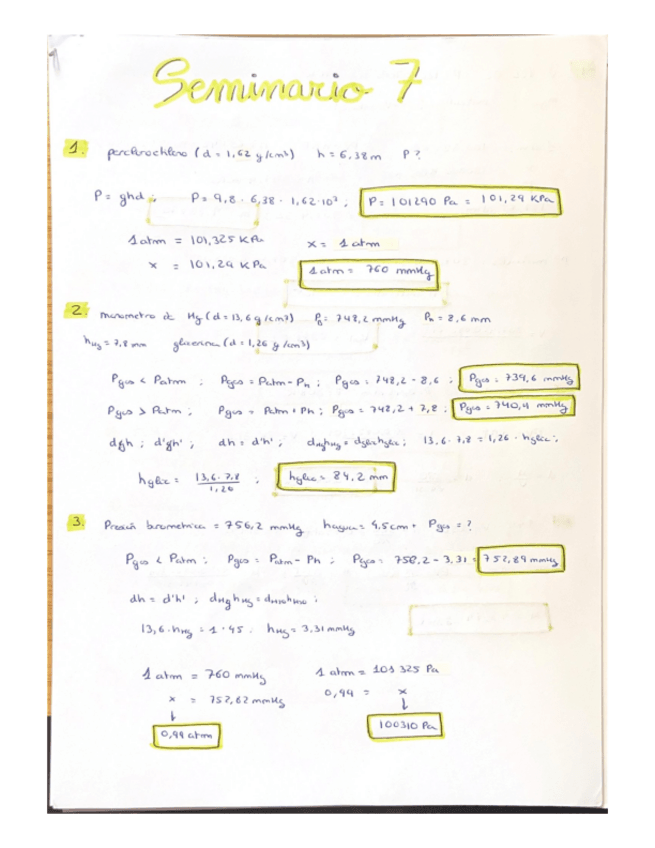 Seminario 7
1. percloroetileno (d = 1,62 g/cm³) h = 6,38 m P?
P = ghd ; P = 9,8 · 6,38 · 1,62·10³ ; P = 101290 Pa = 101,29 KPa
1 atm = 101,325 KPa x = 1 atm
x = 101,29 KPa 1 atm = 760 mmHg
2. manometro de Hg (d = 13,6 g/cm³) P₀ = 748,2 mmHg Pₕ = 8,6 mm
hHg = 7,8 mm glicerina (d = 1,26 g/cm³)
Pgas < Patm ; Pgas = Patm - Ph ; Pgas = 748,2 - 8,6 ; Pgas = 739,6 mmHg
Pgas > Patm ; Pgas = Patm + Ph ; Pgas = 748,2 + 7,8 ; Pgas = 740,4 mmHg
dgh ; d'gh' ; dh = d'h' ; dHghHg = dglichglic ; 13,6 · 7,8 = 1,26 · hglic ;
hglic = 13,6 · 7,8 / 1,26 ; hglic = 84,2 mm
3. Presión barometrica = 756,2 mmHg hagua = 4,5cm Pgas = ?
Pgas < Patm ; Pgas = Patm - Ph ; Pgas = 756,2 - 3,31 = 752,89 mmHg
dh = d'h' ; dHghHg = dH2OhH2O ;
13,6 · hHg = 1 · 45 ; hHg = 3,31 mmHg
1 atm = 760 mmHg 1 atm = 101 325 Pa
x = 752,62 mmHg 0,99 = x
0,99 atm 100310 Pa